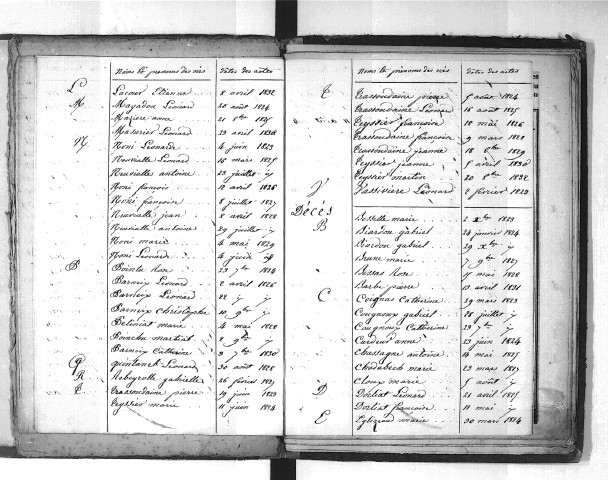 Noms et prénoms des nés dates des actes
L Lacour Etienne 8 avril 1832
M Mazadou Léonard 20 août 1824
Mazière anne 21 8bre 1825
Masurier Léonard 29 avril 1828
N Noni Léonarde 4 juin 1823
Neuvialle Léonard 16 mars 1825
Neuvialle antoine 23 juillet y
Noni françois 12 avril 1826
Noni françoise 8 juillet 1827
Neuvialle jean 8 avril 1828
Neuvialle antoine 29 juillet y
Noni marie 4 mai 1829
Noni Léonard 4 juin
P Pointe Rose 23 7bre 1824
Parneix Léonard 2 avril 1826
Parneix Léonard 22 y y
Parneix Christophe 10 9bre y
Peliniat marie 4 mai 1828
Pouchu martial 2 9bre y
Parneix Catherine 9 7bre 1830
Q quintanel Léonard 30 août 1828
R Rebeyrolle gabrielle 26 février 1827
T Trassoudaine pierre 19 juin 1823
Teyssier marie 11 juin 1824
Noms et prénoms des nés dates des actes
T Trassoudaine pierre 5 août 1824
Trassoudaine Léonard 16 août 1825
Teyssier françoise 18 mai 1826
Trassoudaine françoise 9 mars 1829
Trassoudaine jeanne 18 8bre 1829
Teyssier jeanne 5 avril 1830
Teyssier martin 20 8bre 1832
V Vassivière Léonard 2 février 1823
Décès
B Besselle marie 2 Xbre 1823
Biardou gabriel 24 janvier 1824
Biardou gabriel 29 Xbre y
Brune marie 7 9bre 1827
Bessas Rose 17 mai 1828
Barbe pierre 13 avril 1831
C Coignas Catherine 29 mars 1823
Cougnoux gabriel 28 juillet y
Cougnoux Catherine 23 7bre y
Curdeux anne 23 juin 1824
Chassagne antoine 14 mai 1825
Chadabech marie 23 mars 1827
Cloux marie 5 août y
D Dorliat Léonard 21 avril 1825
Dorliat françoise 11 mai y
E Eglizeau marie 30 mars 1824